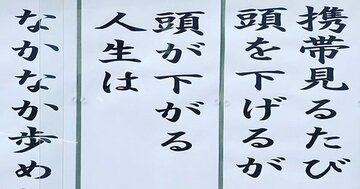 携帯見るたび
頭を下げるが
頭が下がる
人生は
なかなか歩め